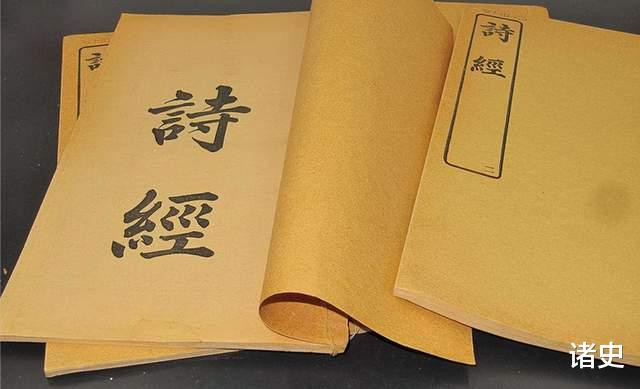 詩
經
詩
經
二
诸史